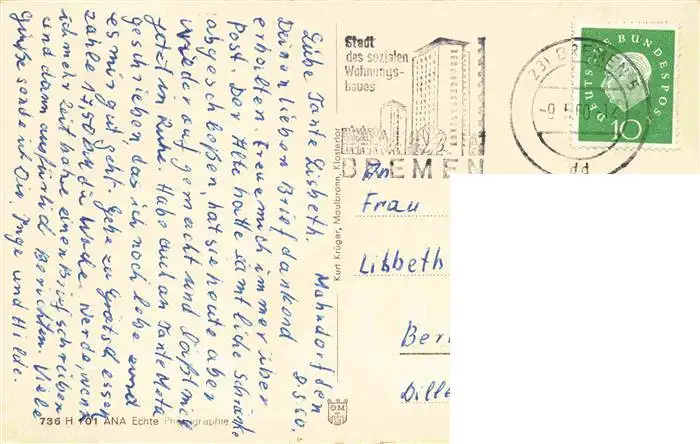 Mahndorf den
8.5.60.
Liebe Tante Lisbeth.
Deinen lieben Brief dankend
erhalten. Freue mich immer über
Post. Der Alte hatte sämtliche Schränke
abgeschloßen, hat sie heute aber
wieder auf gemacht und läßt mich
jetzt in Ruhe. Habe auch an Tante Meta
geschrieben das ich noch lebe und
es mir gut geht. Gehe zu essen
zahle 17,50 DM die Woche. Werde, wenn
ich mehr Zeit habe einen Brief schreiben
und dann ausführlich Berichten. Viele
Grüße sendet Dir, Inge und Hilde.
736 H 101 ANA Echte Photographie
Kurt Krüger, Maulbronn, Klostertor
OM
Stadt
des sozialen
Wohnungs-
baues
BREMEN
(23) BREMEN 5
-9.5.60-12
pd
DEUTSCHE BUNDESPOST
10
An
Frau
Lisbeth
Ber
Dille